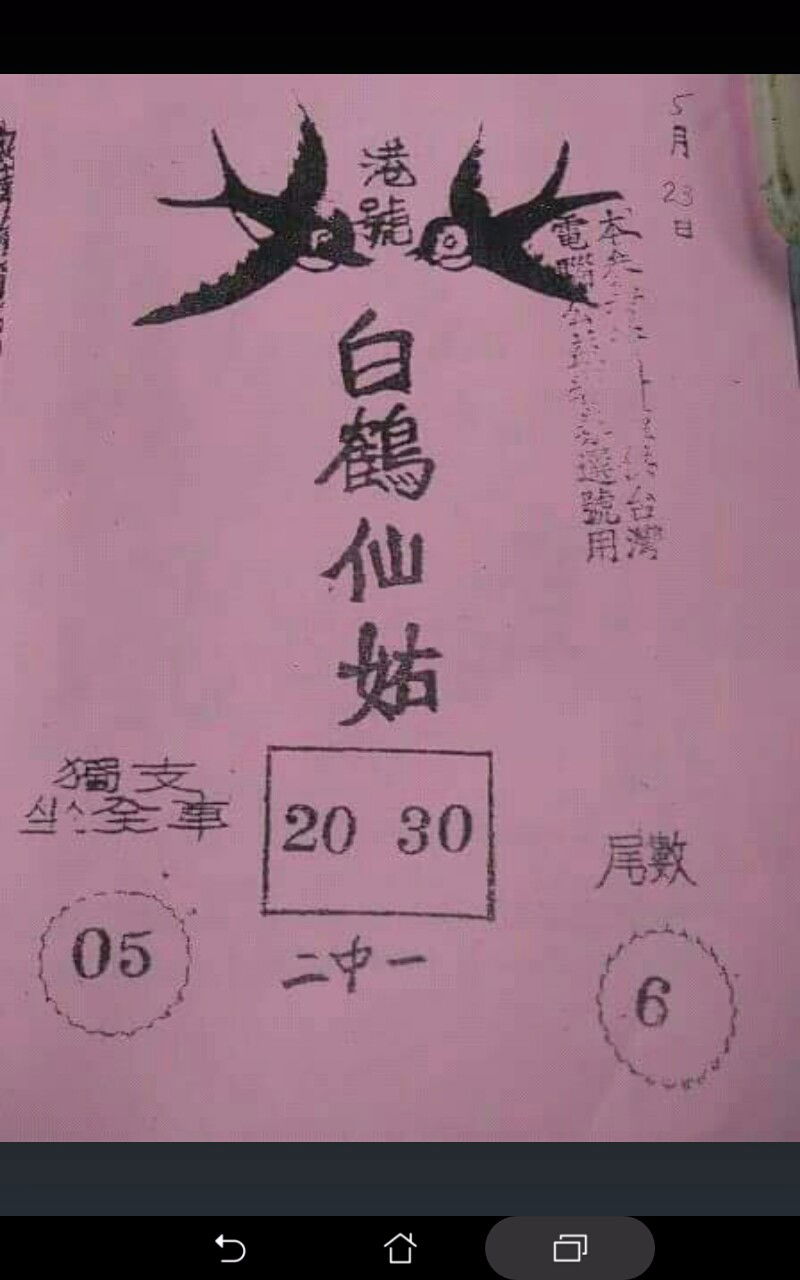 5月23日
港號
白鶴仙姑
本
台灣
電腦
選號用
獨支
全車
20 30
二中一
05
尾數
6